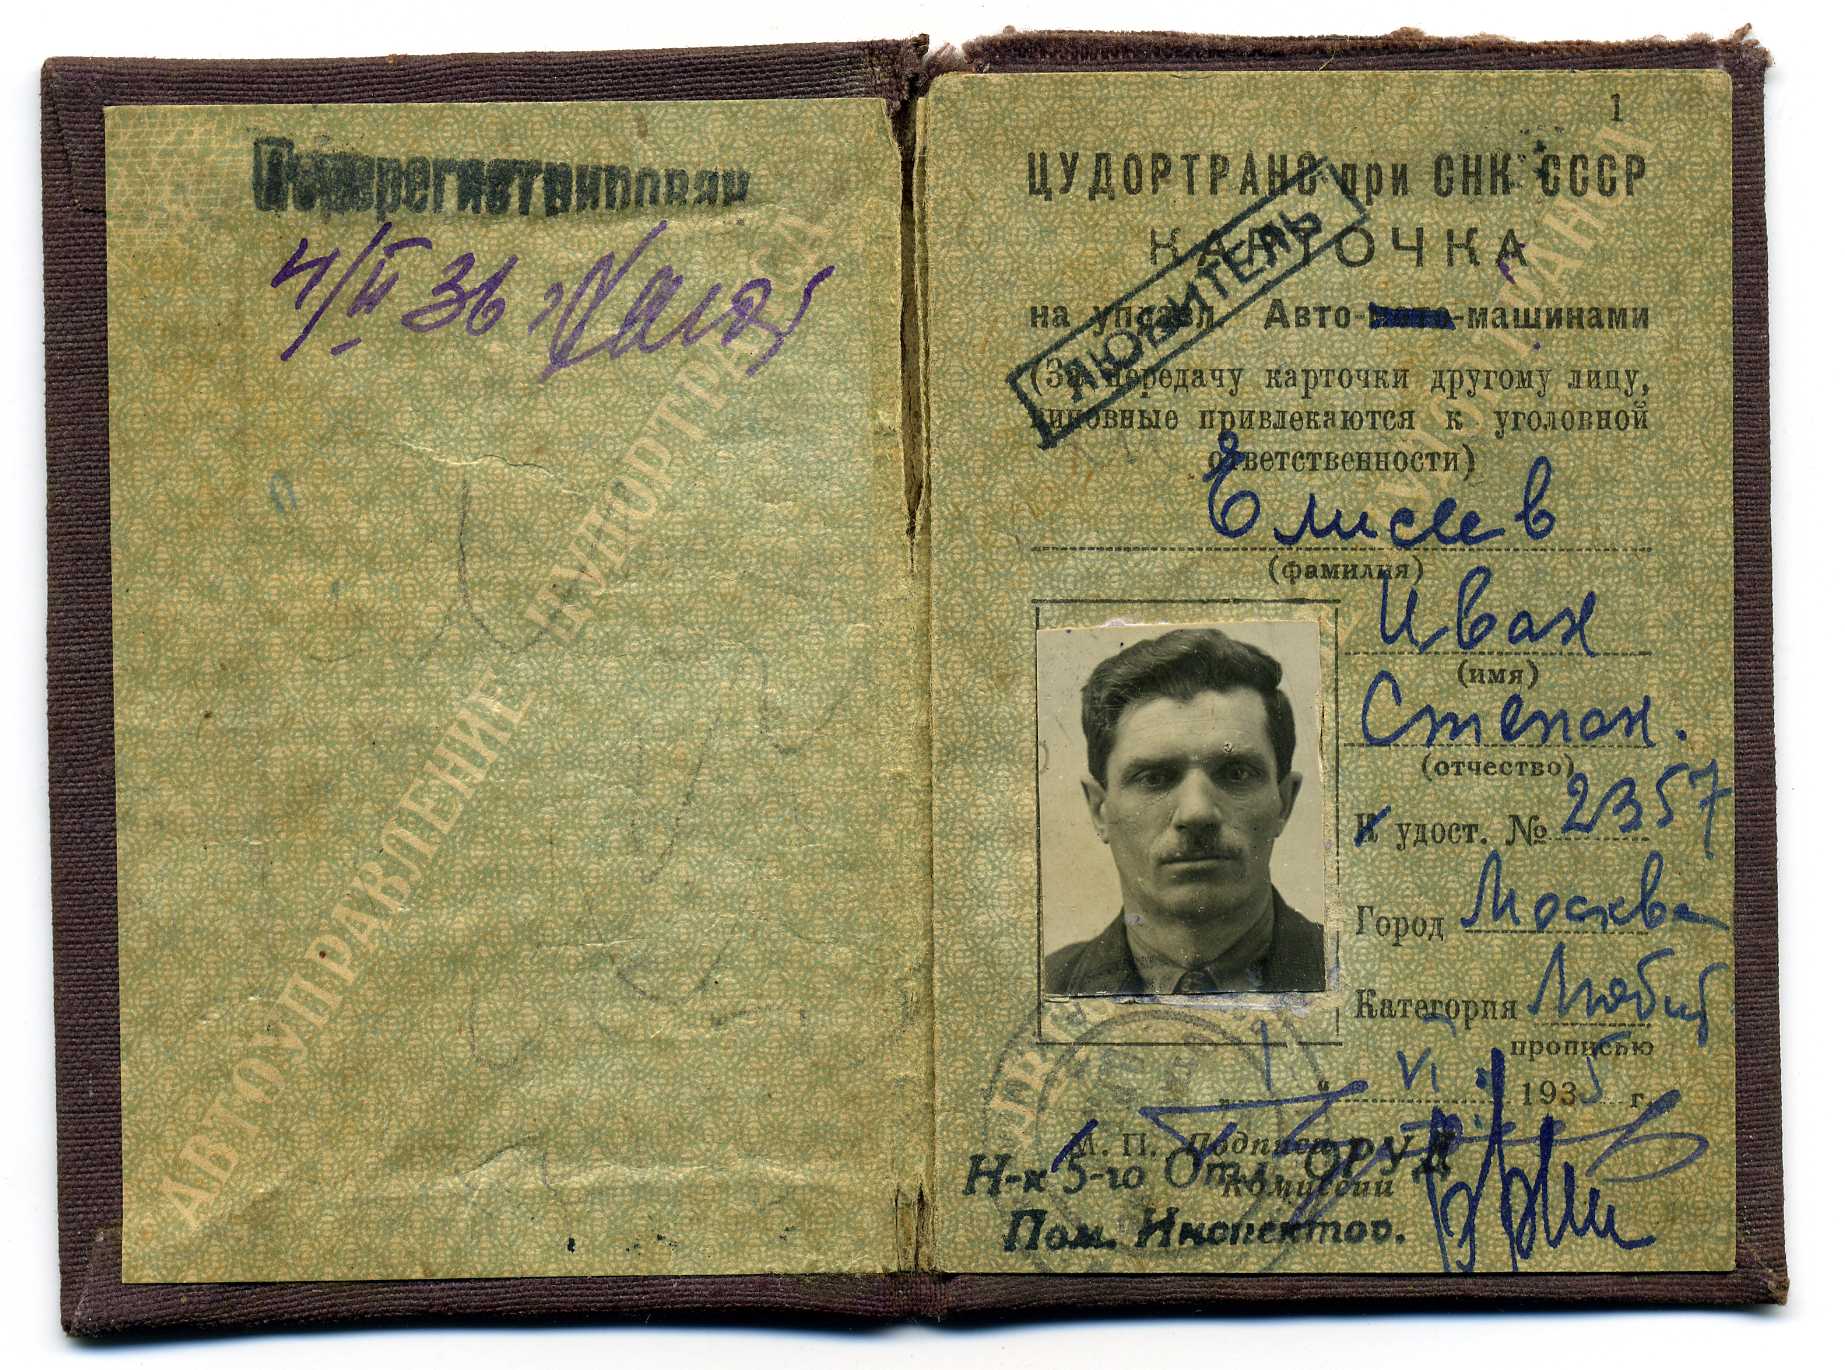 Перерегистрирован
4/II 36 г
АВТОУПРАВЛЕНИЕ ЦУДОРТРАНСА
1
ЦУДОРТРАНС при СНК СССР
КАРТОЧКА
ЛЮБИТЕЛЬ
на управл. Авто-мото-машинами
(За передачу карточки другому лицу,
виновные привлекаются к уголовной
ответственности)
Елисеев
(фамилия)
Иван
(имя)
Степан.
(отчество)
К удост. № 2357
Город Москва
Категория Любит
прописью
1 " VI 1935 г.
М. П. Подписи
Комиссии
Н-к 5-го Отд. ОРУД
Пом. Инспектор.